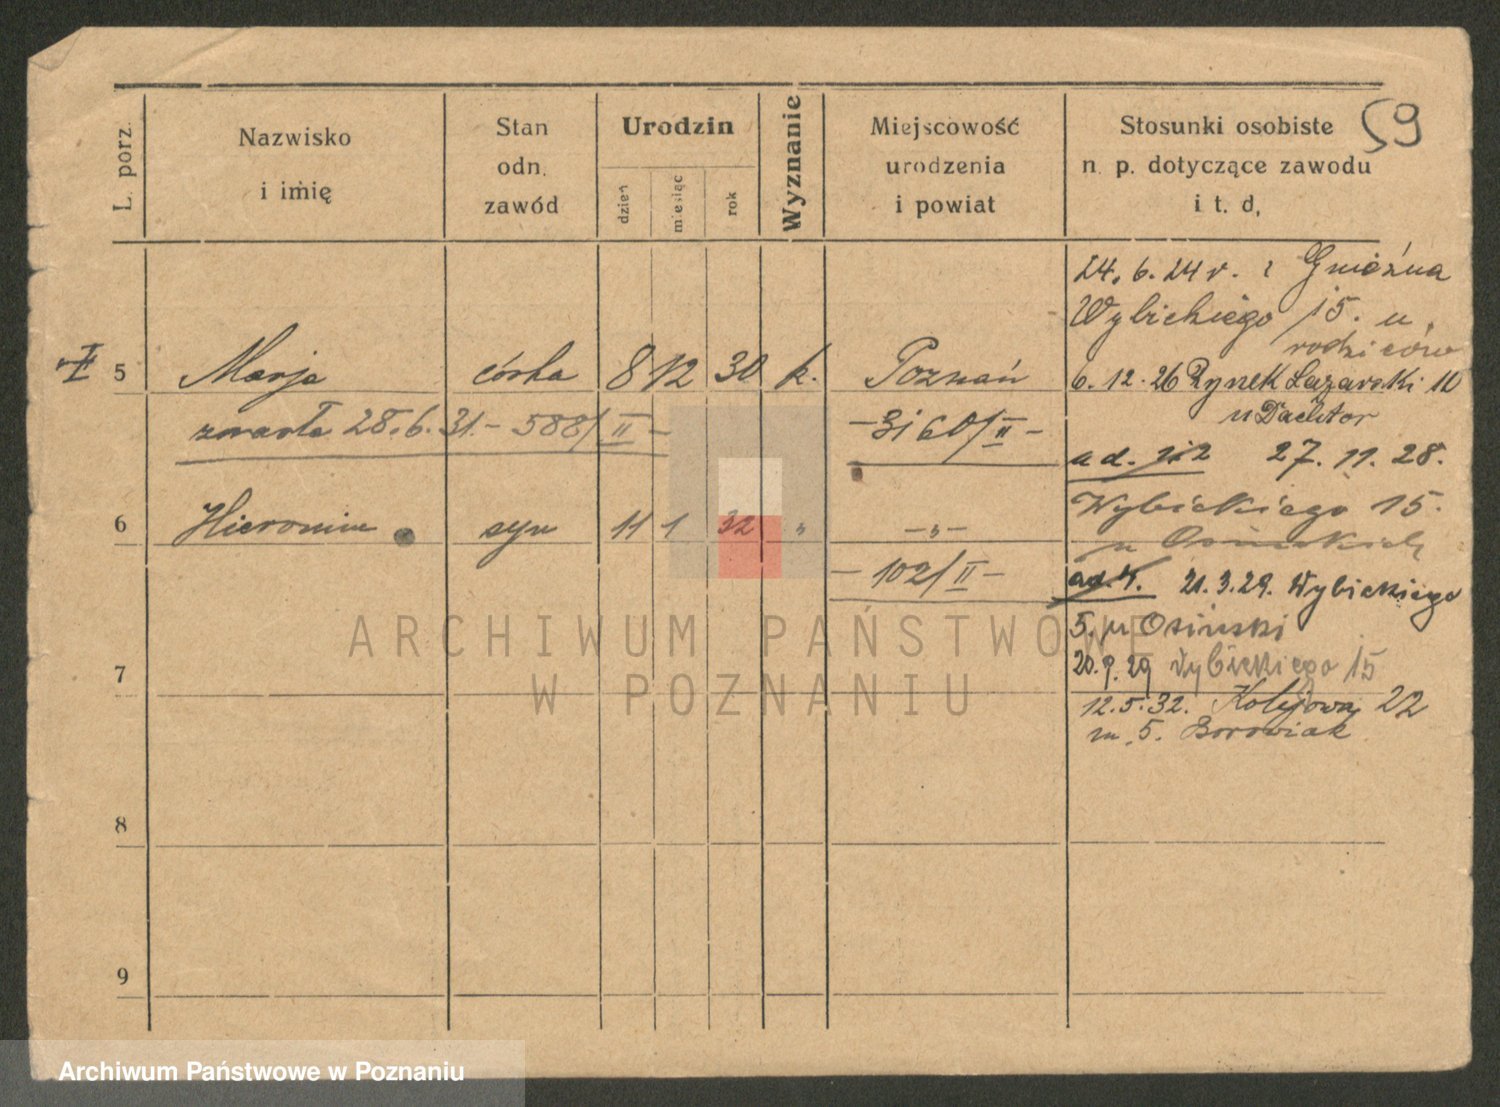 59
L. porz.
Nazwisko
i imię
Stan
odn.
zawód
Urodzin
dzień
miesiąc
rok
Wyznanie
Miejscowość
urodzenia
i powiat
Stosunki osobiste
n. p. dotyczące zawodu
i t. d,
24. 6. 24 r. z Gniezna
Wybickiego 15. u
rodziców
5 Marja córka 8 12 30 k. Poznań
6. 12. 26 Rynek Łazarski 10
u Dachtor
zmarła 28. 6. 31. - 588/II -
- 3160/II -
ad. 1i2 27. 11. 28.
Wybickiego 15.
u Osińskich
6 Hieronim syn 11 1 32 " - " -
- 102/II -
ad. 4. 21. 3. 29. Wybickiego
5. u Osiński
20. 9. 29 Wybickiego 15
7
12. 5. 32. Kolejowa 22
m. 5. Borowiak
8
9
ARCHIWUM PAŃSTWOWE
W POZNANIU
Archiwum Państwowe w Poznaniu